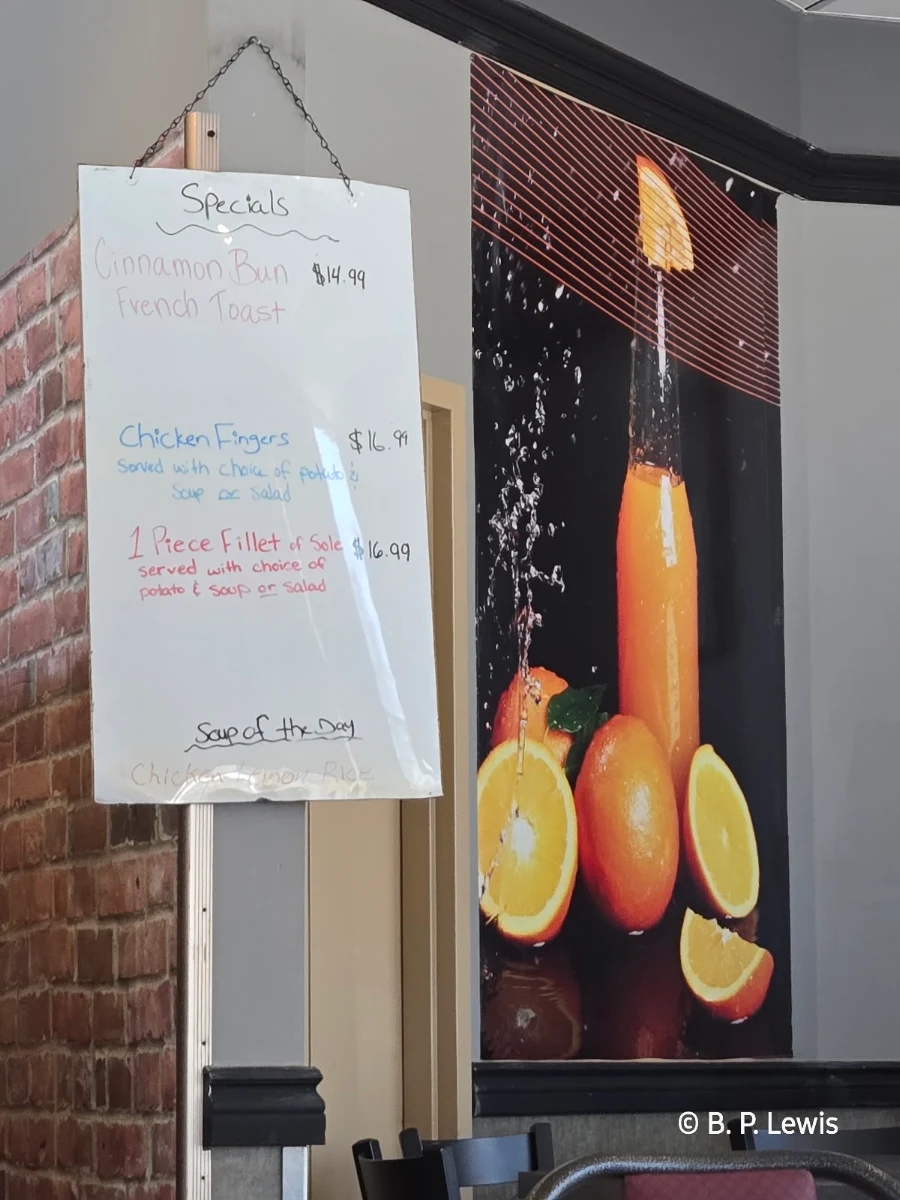 Specials
Cinnamon Bun $14.99
French Toast
Chicken Fingers $16.99
Served with choice of potato &
Soup or salad
1 Piece Fillet of Sole $16.99
served with choice of
potato & soup or salad
Soup of the Day
Chicken Lemon Rice
© B. P. Lewis